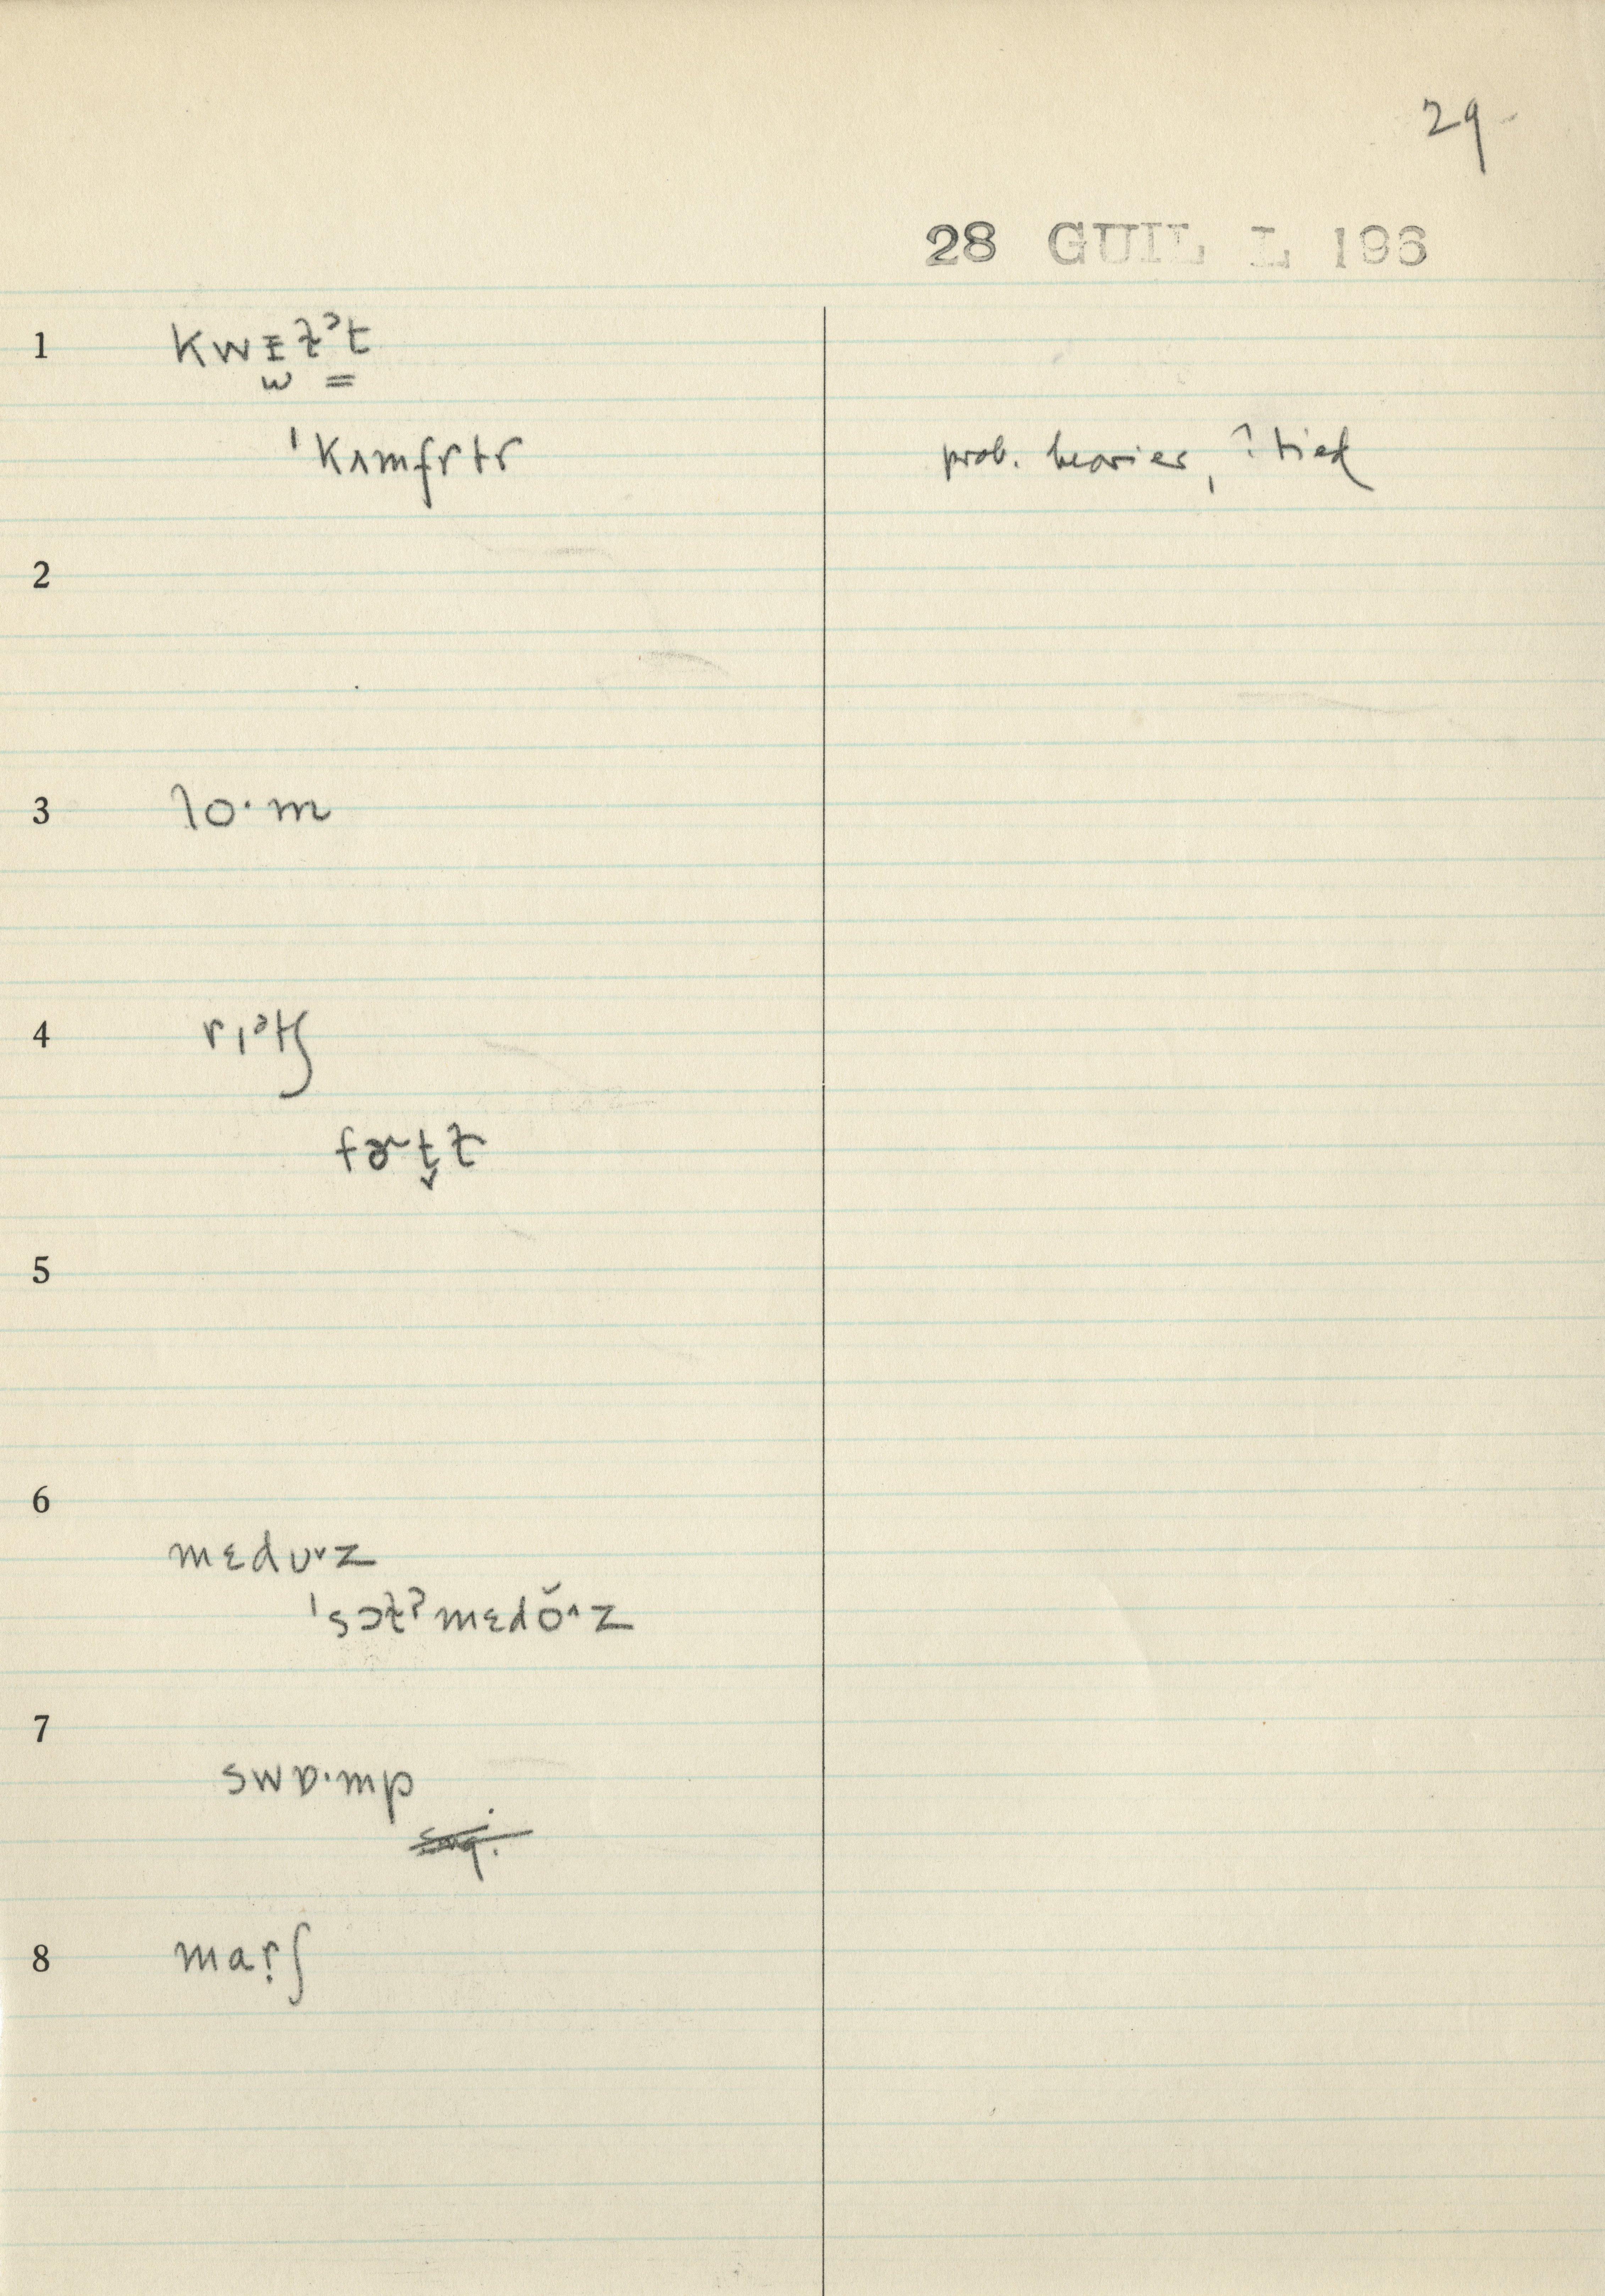 29
28 GUIL L 196
1 kwᵻɫᵊt
ˈkʌmfɚtɚ prob. heavier, ? tied
2
3 lo·m
4 rɪᵊtʃ
fɚt̬ɫ
5
6 mɛdʊˑz
ˈsɔɫˀmɛdŏ^z
7 swɒ·mp
8 mar̩ʃ